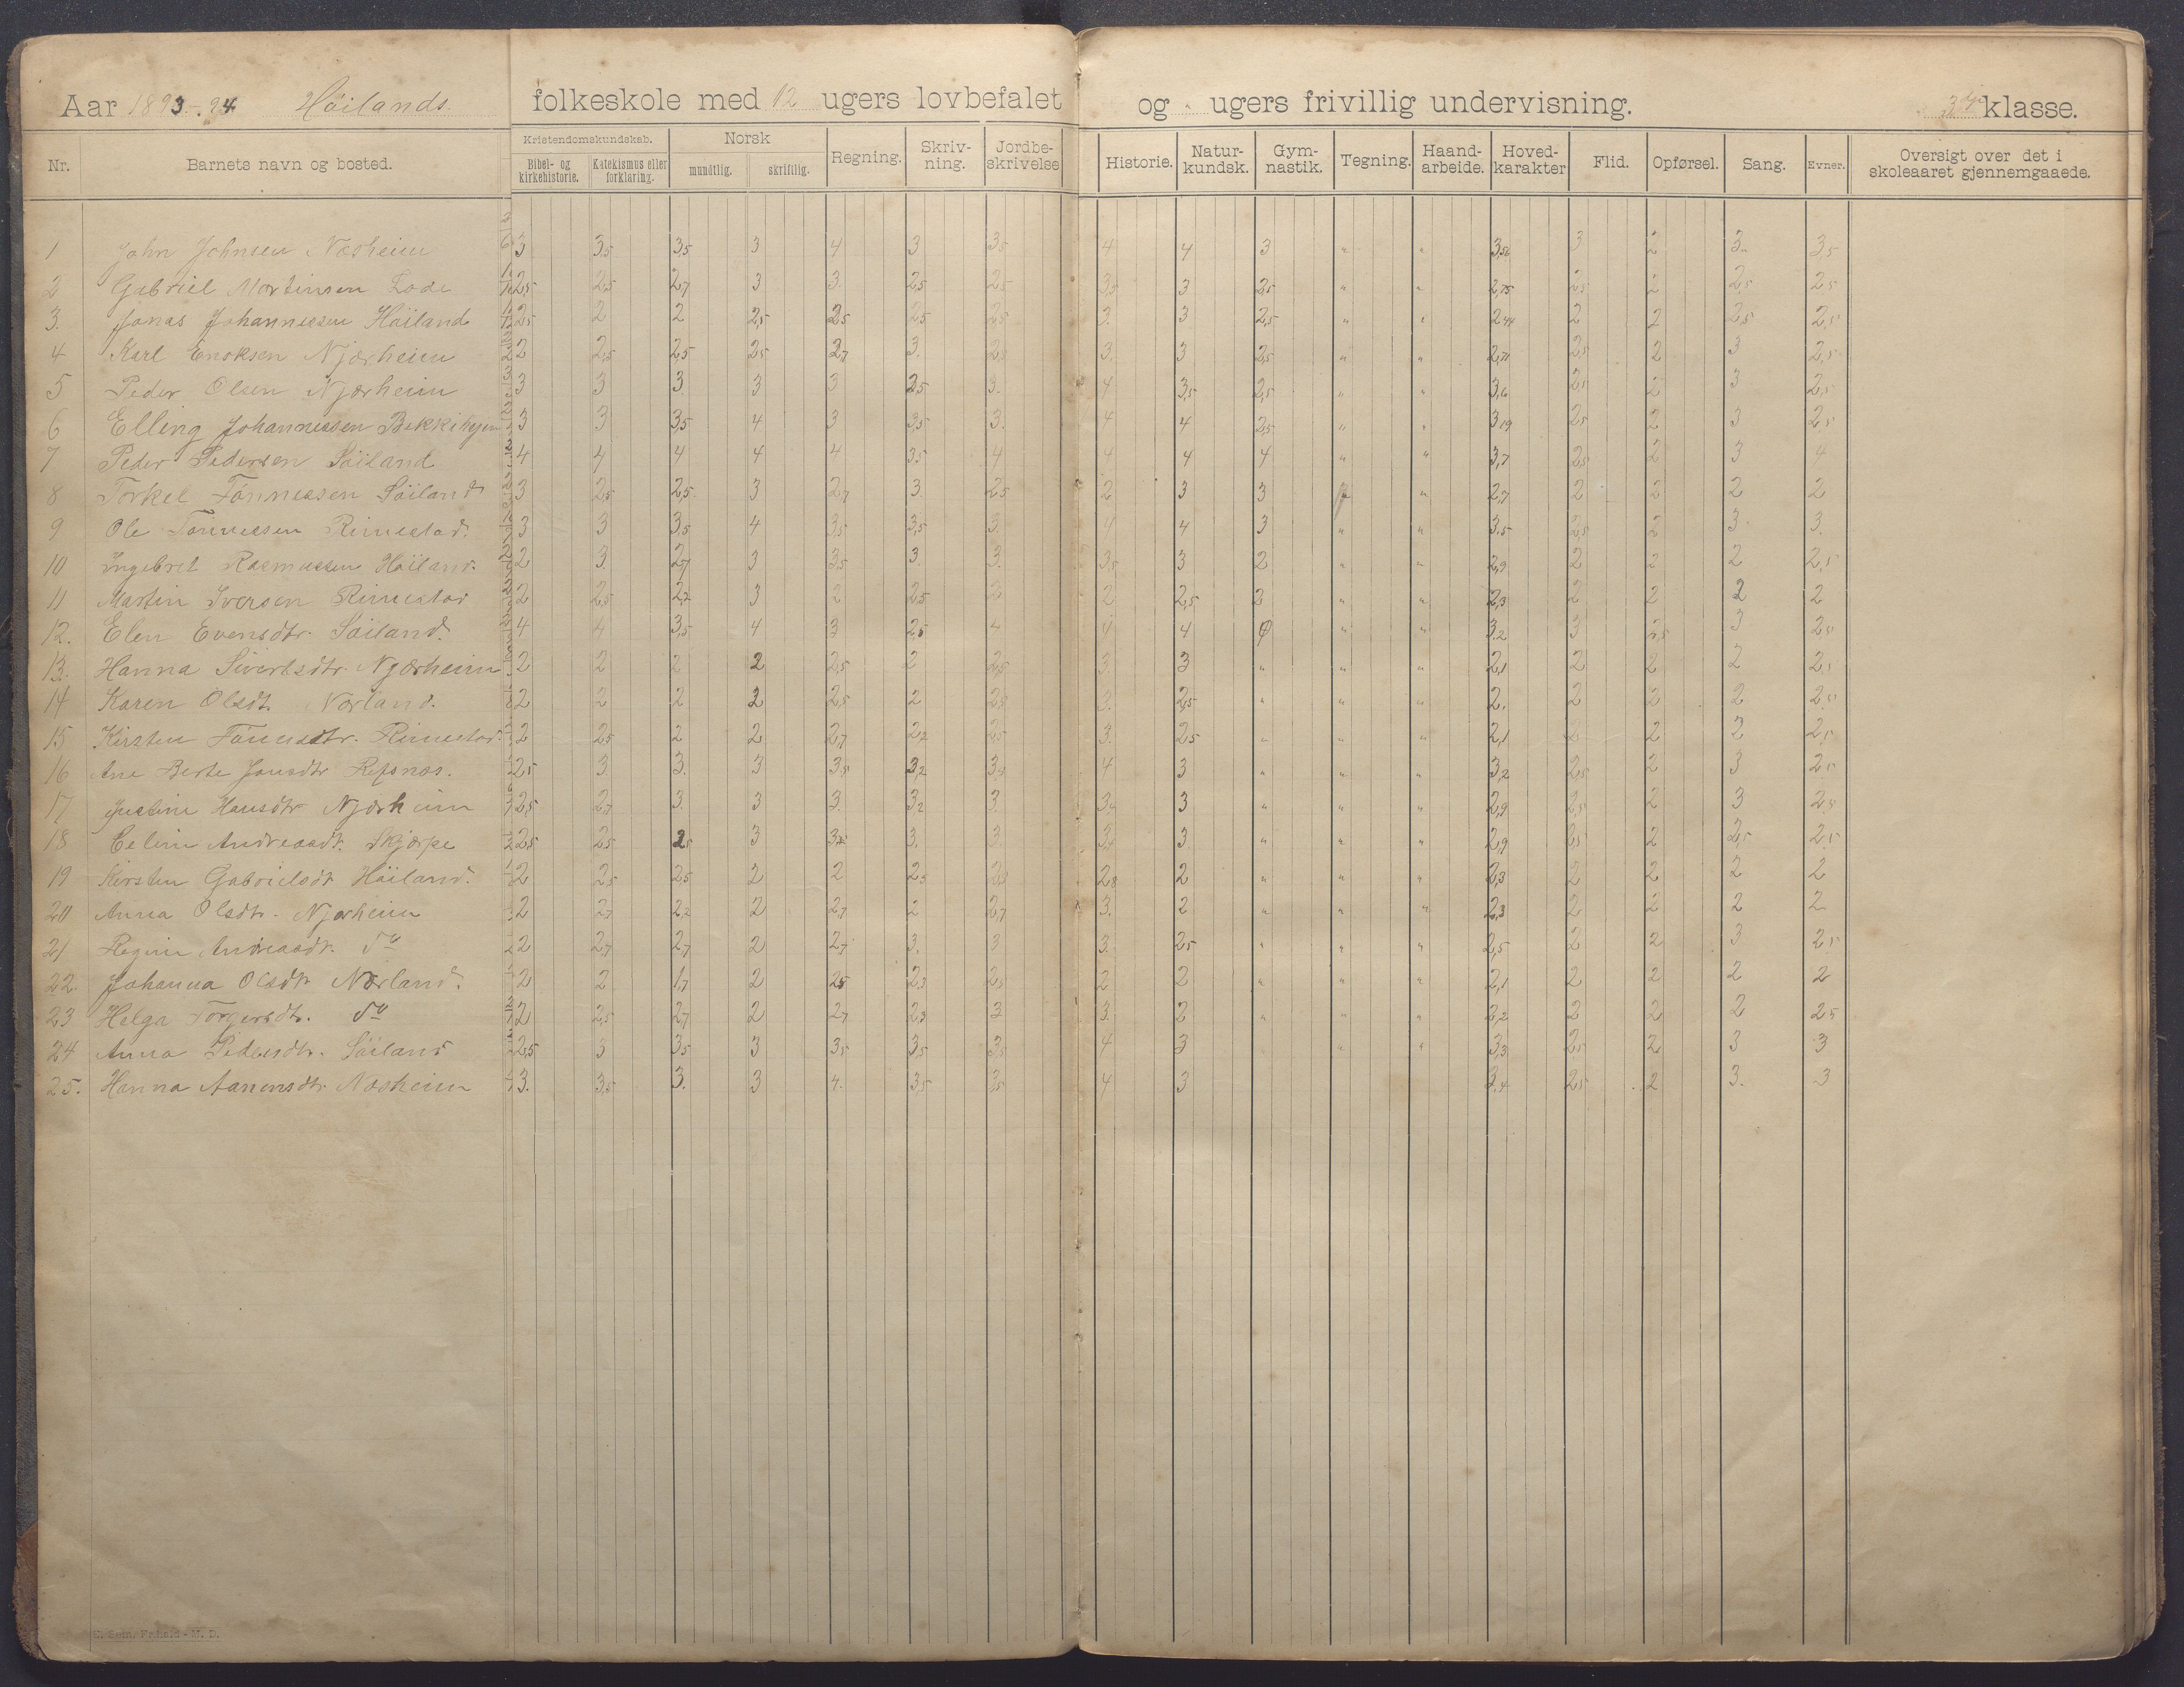 Aar 1893-94 Höilands folkeskole med 12 ugers lovbefalet og " ugers frivillig undervisning. 3die klasse.
Nr. Barnets navn og bosted. Kristendomskundskab. Bibel- og kirkehistorie. Katekismus eller forklaring. Norsk mundtlig. skriftlig. Regning. Skriv-ning. Jordbe-skrivelse Historie. Natur-kundsk. Gym-nastik. Tegning. Haand-arbeide. Hoved-karakter Flid. Opførsel. Sang. Evner. Oversigt over det i skoleaaret gjennemgaaede.
1 John Johnsen Næsheim 3 3,5 3,5 3 4 3 3,5 4 4 3 " " 3,50 3 2 3 3,5
2 Gabriel Martinsen Lode 2,5 2,5 2,7 3 3 2,5 2,5 3,5 3 2,5 " " 2,75 2,5 2 2,5 2,5
3. Jonas Johannessen Höiland 2,5 2 2 2,5 2,5 2,5 2,5 3. 3 2,5 " " 2,44 2 2 2,5 2,5
4 Karl Enoksen Njærheim 2 2,5 2,5 2,5 2,7 3. 2,5 3. 3 2,5 " " 2,70 2,5 2 3 2,5
5 Peder Olsen Njærheim 3 3 3. 3 3 2,5 3. 4 3,5 2,5 " " 3,6 2,5 2 3 2,5
6 Elling Johannessen Bekkihejen 3 3 3,5 4 3 3,5 3. 4 4 2,5 " " 3,19 2,5 2 3 2,5
7 Peder Pedersen Söiland 4 4 4 4 4 3,5 4 4 4 4 " " 3,7 2,5 2 3 4
8 Torkel Tönnessen Söiland 3 2,5 2,5 3 2,7 3. 2,5 2 3 3 " 2,7 2 2 2 2
9 Ole Tönnessen Rimestad. 3 3 3,5 4 3,5 3,5 3 4 4 3 " " 3,5 2,5 2 3 3.
10 Ingebret Rasmussen Höiland. 2 3. 2,7 3 3,5 3. 3. 3,5 3 2 " " 2,9 2 2 2 2,5
11 Martin Iversen Rimestad 2 2,5 2,2 3 2 2,5 2 2 2,5 2 " " 2,3 2 2 2 2
12. Elen Evensdtr. Söiland. 4 4 3,5 4 3 2,5 4 4 4 " " 3,2 3 2,5 3 2,5
13. Hanna Sivertsdtr. Njærheim 2 2 2 2 2,5 2 2,5 3 3 " " " 2,1 2 2 2 2,5
14 Karen Olsdt. Nærland. 2 2 2 2 2,5 2 2,5 3. 2,5 " " " 2. 2 2 2 2,5
15 Kirsten Tönnesdtr. Rimestad. 2 2,5 2 2 2,7 2,2 2,5 3. 2,5 " " " 2,1 2 2 2 2,5
16 Ane Berte Jonsdtr Refsnæs. 2,5 3. 3. 3 3,5 3,2 3,5 4 3 " " " 3,2 2,5 2 3 2,5
17 Justine Hansdtr Njærheim 2,5 2,7 3. 3 3. 3,2 3. 3, 3 " " " 2,9 2,5 2 3 2,5
18 Celine Andreasdt. Skjærpe 2,5 2,5 2,5 3 3,2 3. 3. 3,4 3. " " " 2,9 2,5 2 2,5 2,5
19 Kirsten Gabrielsdt Höiland. 2 2,5 2,5 2 2 2,3 2,3 2,8 2 " " " 2,3 2 2 2 2
20 Anna Olsdtr. Njærheim 2 2,7 2,2 2 2,7 2 2,7 3. 2 " " " 2,3 2 2 2 2
21 Regine Andreasdt. do 2 2,7 2,7 2 2,7 3. 3 3. 2,5 " " " 2,5 2 2 3 2,5
22. Johanna Olsdtr Nærland. 2 2 1,7 2 2,5 2,3 2,5 2 2 " " " 2,1 2 2 2 2
23 Helga Torgersdtr. do 2 2,5 2,7 2 2,7 2,3 3 3. 2 " " " 2,2 2 2 2 2,5
24 Anna Pedersdtr. Söiland 2,5 3 3,5 3 3,5 3,5 3,5 4 3 " " 3,3 2,5 2 3 3
25. Hanna Aanensdtr. Næsheim 3. 3,5 3. 3 4. 3,5 3,5 4 3 3,4 2,5 2 3. 3